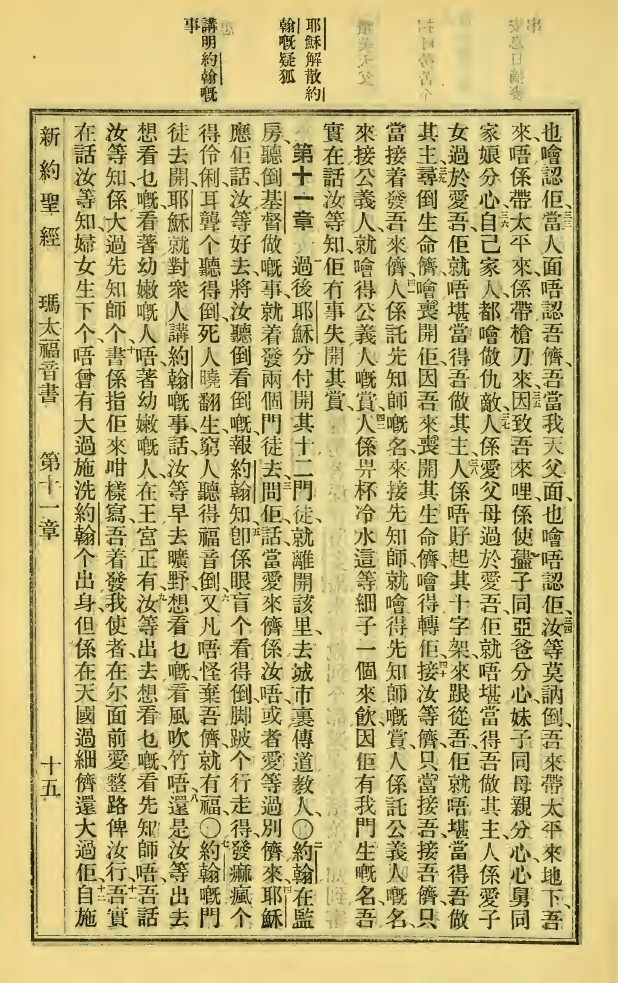 耶穌解散約
翰嘅疑狐
講明約翰嘅
事
也噲認佢當人面唔認吾儕吾當我天父面也噲唔認佢汝等莫訥倒吾來帶太平來地下吾
來唔係帶太平來係帶槍刀來因致吾來哩係使孻子同亞爸分心妹子同母親分心心舅同
家娘分心自己家人都噲做仇敵人係愛父母過於愛吾佢就唔堪當得吾做其主人係愛子
女過於愛吾佢就唔堪當得吾做其主人係唔好起其十字架來跟從吾佢就唔堪當得吾做
其主尋倒生命儕噲喪開佢因吾來喪開其生命儕噲得轉佢接汝等儕只當接吾接吾儕只
當接着發吾來儕人係託先知師嘅名來接先知師就噲得先知師嘅賞人係託公義人嘅名
來接公義人就噲得公義人嘅賞人係畀杯冷水這等細子一個來飲因佢有我門生嘅名吾
實在話汝等知佢冇事失開其賞
第十一章 過後耶穌分付開其十二門徒就離開該里去城市裏傳道教人〇約翰在監
房聽倒基督做嘅事就着發兩個門徒去問佢話當愛來儕係汝唔或者愛等過別儕來耶穌
應佢話汝等好去將汝聽倒看倒嘅報約翰知卽係眼盲个看得倒脚跛个行走得發痲瘋个
得伶俐耳聾个聽得倒死人曉翻生窮人聽得福音倒又凡唔怪棄吾儕就有福〇約翰嘅門
徒去開耶穌就對衆人講約翰嘅事話汝等早去曠野想看乜嘅看風吹竹唔還是汝等出去
想看乜嘅看著幼嫩嘅人唔著幼嫩嘅人在王宮正有汝等出去想看乜嘅看先知師唔吾話
汝等知係大過先知師个書係指佢來咁樣寫吾着發我使者在尔面前愛整路俾汝行吾實
在話汝等知婦女生下个唔曾有大過施洗約翰个出身但係在天國過細儕還大過佢自施
新約聖經 瑪太福音書 第十一章 十五